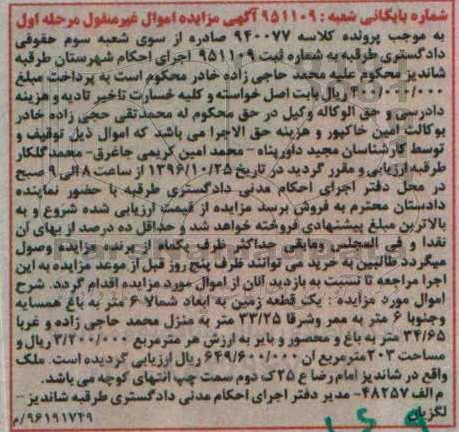 شماره بایگانی شعبه : ۹۵۱۱۰۹ آگهی مزایده اموال غیرمنقول مرحله اول
به موجب پرونده کلاسه ۹۴۰۰۷۷ صادره از سوی شعبه سوم حقوقی
دادگستری طرقبه به شماره ثبت ۹۵۱۱۰۹ اجرای احکام شهرستان طرقبه
شاندیز محکوم علیه محمد حاجی زاده خادر محکوم است به پرداخت مبلغ
۴۰۰/۰۰۰/۰۰۰ ریال بابت اصل خواسته و کلیه خسارت تاخیر تادیه و هزینه
دادرسی و حق الوکاله وکیل در حق محکوم له محمدتقی حجی زاده خادر
بوکالت امین خاکپور و هزینه حق الاجرا می باشد که اموال ذیل توقیف و
توسط کارشناسان مجید داورپناه - محمد امین کریمی جاغرق- محمد گلکار
طرقبه ارزیابی و مقرر گردید در تاریخ ۱۳۹۶/۱۰/۲۵ از ساعت ۸ الی ۹ صبح
در محل دفتر اجرای احکام مدنی دادگستری طرقبه با حضور نماینده
دادستان محترم به فروش برسد مزایده از قیمت ارزیابی شده شروع و به
بالاترین مبلغ پیشنهادی فروخته خواهد شد و حداقل ده درصد از بهای آن
نقدا و فی المجلس ومابقی حداکثر ظرف یکماه از برنده مزایده وصول
میگردد طالبین به خرید می توانند ظرف پنج روز قبل از موعد مزایده به این
اجرا مراجعه تا نسبت به بازدید آنان از اموال مورد مزایده اقدام گردد. شرح
اموال مورد مزایده : یک قطعه زمین به ابعاد شمالا ۶ متر به باغ همسایه
وجنوبا ۶ متر به ممر وشرقا ۳۳/۲۵ متر به منزل محمد حاجی زاده و غربا
۳۴/۶۵ متر به باغ و محصور و بایر به ارزش هر مترمربع ۳/۲۰۰/۰۰۰ ریال و
مساحت ۲۰۳ مترمربع ان ۶۴۹/۶۰۰/۰۰۰ ریال ارزیابی گردیده است. ملک
واقع در شاندیز امام رضا ع ۲۵ ک دوم سمت چپ انتهای کوچه می باشد.
م الف ۴۸۲۵۷- مدیر دفتر اجرای احکام مدنی دادگستری طرقبه شاندیز -
لگزیان
۹۶۱۹۱۷۴۹/م